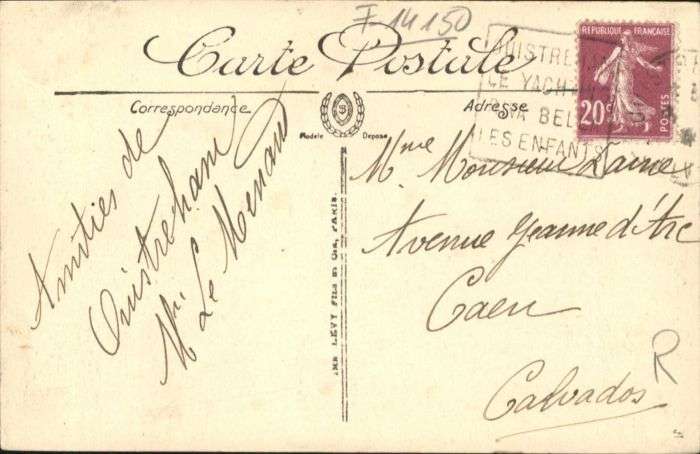 F-14150
Carte Postale
Correspondance
Modèle Déposé
Adresse
RÉPUBLIQUE FRANÇAISE
20c
POSTES
OUISTRE
LE YACH
SA BEL
LES ENFANTS
Amitiés de
Ouistreham
Mr. Le Menand
Imp. LÉVY Fils et Cie, PARIS.
Mme Monsieur Laine
Avenue Jeanne d'Arc
Caen
Calvados
R